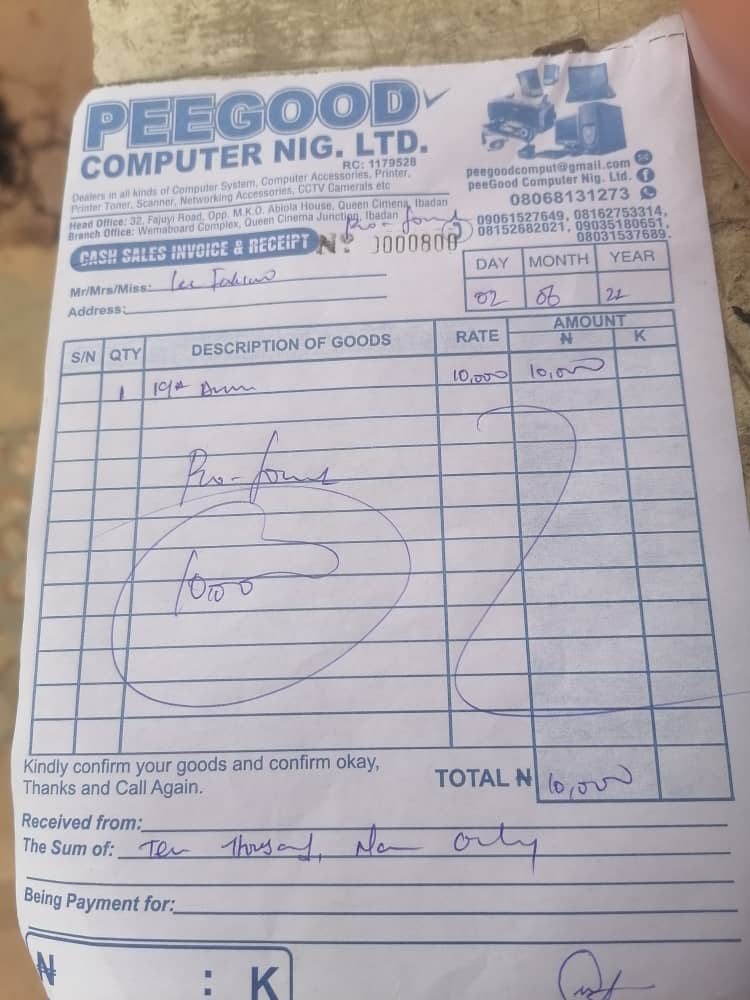 PEEGOOD
COMPUTER NIG. LTD.
RC: 1179528
Dealers in all kinds of Computer System, Computer Accessories, Printer,
Printer Toner, Scanner, Networking Accessories, CCTV Camerals etc
Head Office: 32, Fajuyi Road, Opp. M.K.O. Abiola House, Queen Cimena, Ibadan
Branch Office: Wemaboard Complex, Queen Cinema Junction, Ibadan
peegoodcomput@gmail.com
peeGood Computer Nig. Ltd.
08068131273
09061527649, 08162753314,
08152682021, 09035180651,
08031537689.
CASH SALES INVOICE & RECEIPT
Nº 0000800
Pro-forma
Mr/Mrs/Miss:
Address:
DAY MONTH YEAR
02 06 22
S/N QTY DESCRIPTION OF GOODS RATE AMOUNT
₦ K
1 10,000 10,000
Pro-forma
10,000
Kindly confirm your goods and confirm okay,
Thanks and Call Again.
TOTAL ₦ 10,000
Received from:
The Sum of: Ten thousand, only
Being Payment for:
₦ : K